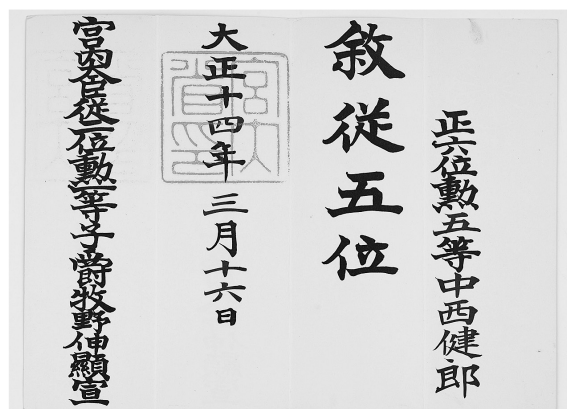 正六位勲五等中西健郎
敘従五位
大正十四年三月十六日
宮内省印
宮内大臣従二位勲一等子爵牧野伸顯宣